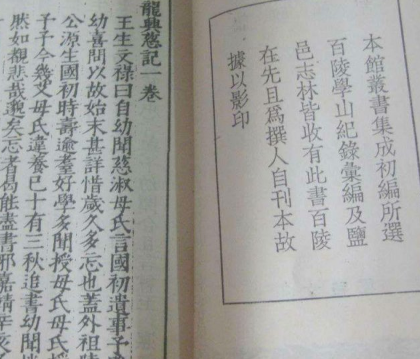 本館叢書集成初編所選
百陵學山紀錄彙編及鹽
邑志林皆收有此書百陵
在先且爲撰人自刊本故
據以影印
龍興慈記一卷
王生文祿曰自幼聞慈淑母氏言國初遺事予
幼喜聞以故始末甚詳惜歲久多忘也蓋外祖陸
公源生國初時壽逾耋好學多聞授母氏母氏授
子予今幾艾母氏違養已十有三秋追書幼聞
然如覩悲哉邈矣忘者曷能盡書邪嘉靖辛亥